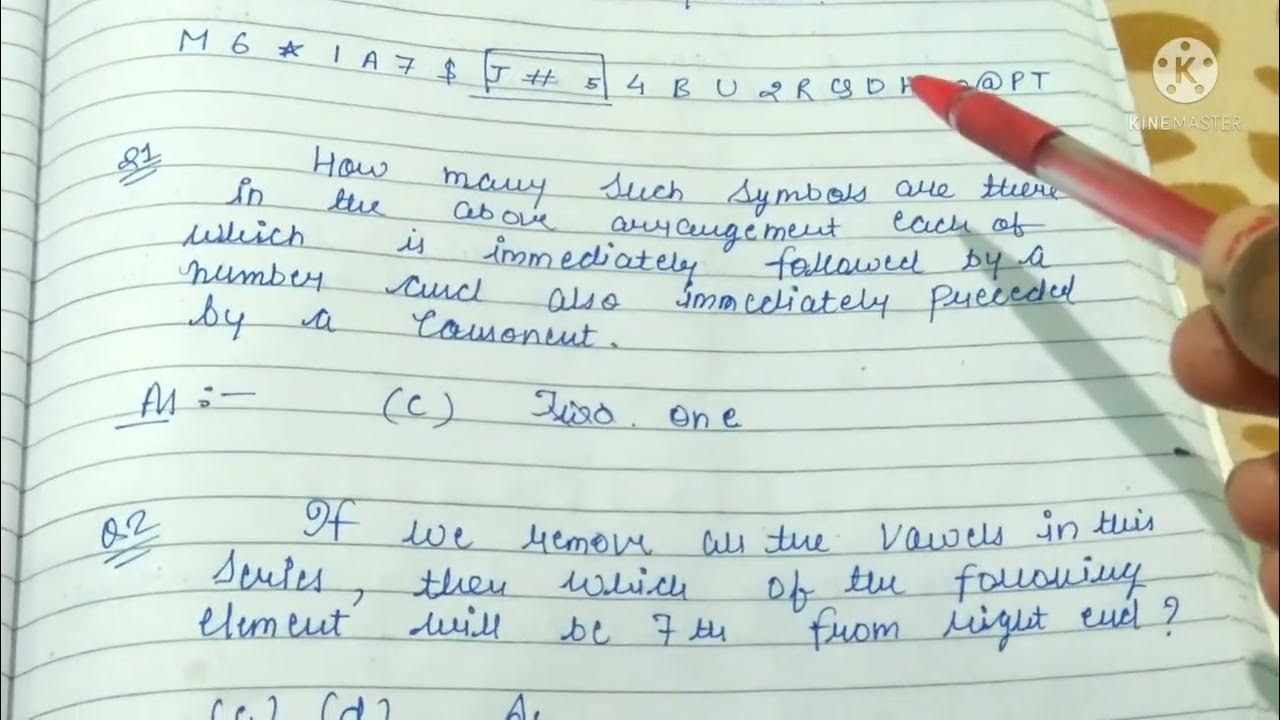 M 6 * 1 A 7 $ J # 5 4 B U 2 R D @ P T
KINEMASTER
Q1 How many such symbols are there
in the above arrangement each of
which is immediately followed by a
number and also immediately preceded
by a Consonent.
As :- (C) one
Q.2 If we remove all the Vowels in this
Series, then which of the following
element will be 7th from right end?
(d)